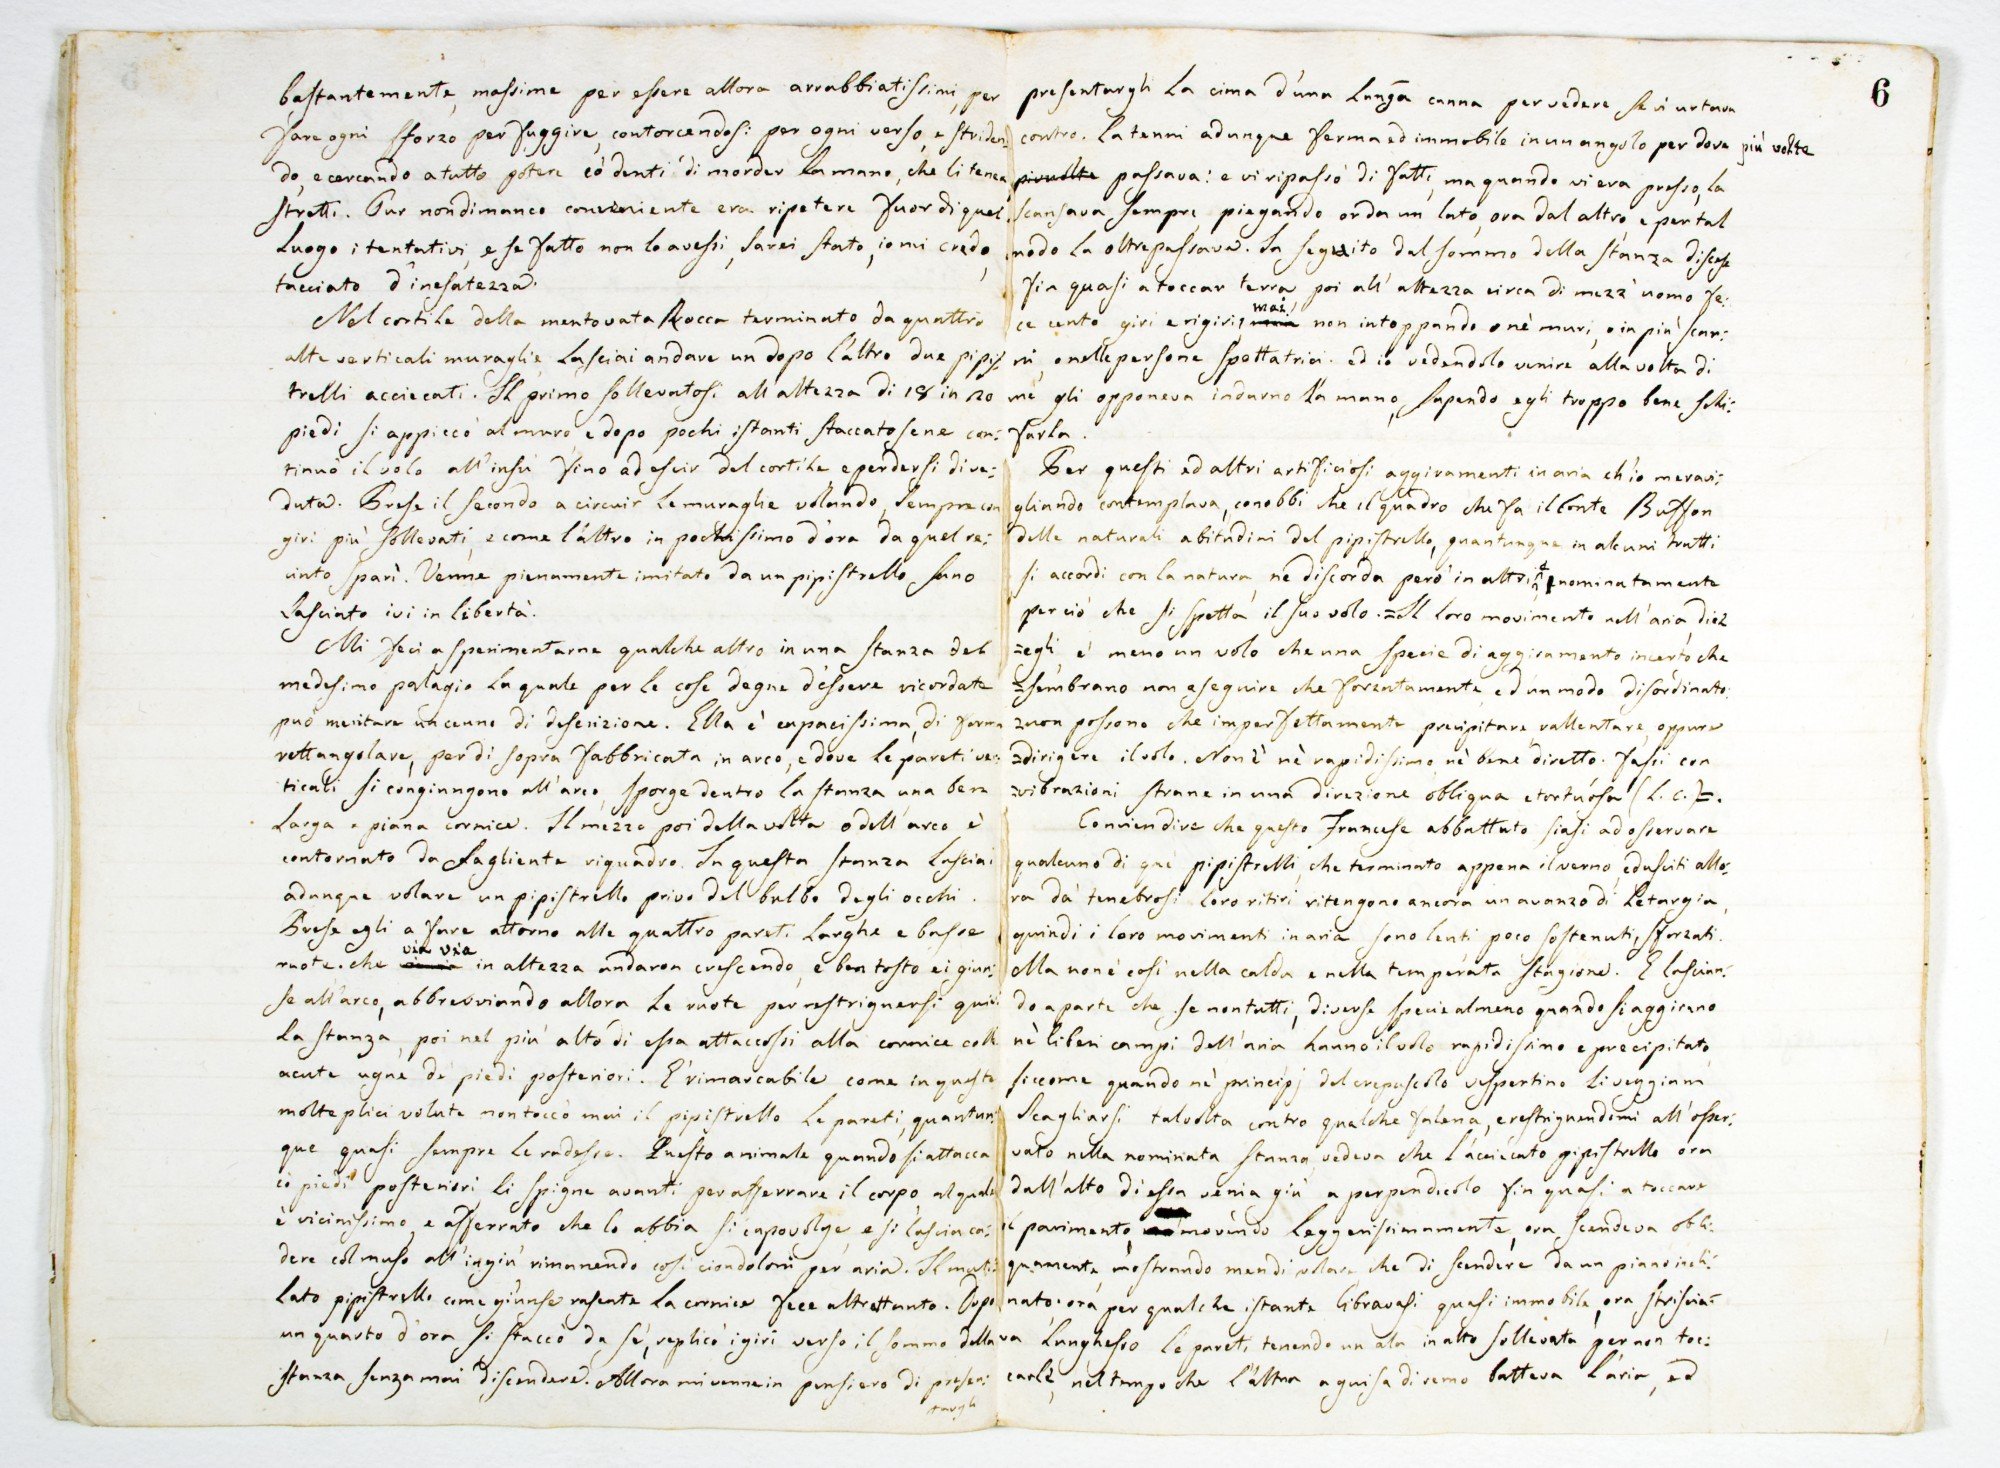 bastantemente, massime per essere allora arrabbiatissimi, per
fare ogni sforzo per fuggire, contorcendosi per ogni verso, e striden:
do, e cercando a tutto potere co' denti di morder la mano, che li tenea
stretti. Pur nondimanco conveniente era ripetere fuor di quel
luogo i tentativi, e se fatto non lo avessi, sarei stato, io mi credo,
tacciato d'inesatezza.
Nel cortile della mentovata Rocca terminato da quattro
alte verticali muraglie, lasciai andare un dopo l'altro due pipis:
trelli acciecati. Il primo sollevatosi all'altezza di 18 in 20
piedi si appiccò al muro, e dopo pochi istanti staccatosene con:
tinuò il volo all'insù fino ad escir del cortile e perdersi di ve:
duta. Prese il secondo a circuir le muraglie volando, sempre con
giri più sollevati, e come l'altro in pochissimo d'ora da quel re:
cinto sparì. Venne pienamente imitato da un pipistrello sano
lasciato ivi in libertà.
Mi feci a sperimentarne qualche altro in una stanza del
medesimo palagio la quale per le cose degne d'essere ricordate
può meritare un cenno di descrizione. Ella è capacissima, di forma
rettangolare, per di sopra fabbricata in arco, e dove le pareti ver:
ticali si congiungono all'arco, sporge dentro la stanza una ben
larga e piana cornice. Il mezzo poi della volta o dell'arco è
contornato da sagliente riquadro. In questa stanza lasciai
adunque volare un pipistrello privo del bulbo degli occhi.
Prese egli a fare attorno alle quattro pareti larghe e basse
ruote. che via via in altezza andaron crescendo, e ben tosto ei giun:
se all'arco, abbreviando allora le ruote per restrignersi quivi
la stanza, poi nel più alto di essa attaccossi alla cornice coll'
acute ugne de' piedi posteriori. E' rimarcabile come in queste
molteplici volute non toccò mai il pipistrello le pareti, quantun:
que quasi sempre le radesse. Questo animale quando si attacca
co' piedi posteriori, li spigne avanti per afferrare il corpo al quale
è vicinissimo, e afferrato che lo abbia si capovolge e si lascia ca:
dere col muso all'ingiù rimanendo così ciondoloni per aria. Il muti:
lato pipistrello come giunse rasente la cornice fece altrettanto. Dopo
un quarto d'ora si staccò da sé, replicò i giri verso il sommo della
stanza senza mai discendere. Allora mi venne in pensiero di presen:
targli
6
presentargli la cima d'una lunga canna per vedere se vi urtava
contro. La tenni adunque ferma ed immobile in un angolo per dove più volte
piuvolte passava: e vi ripassò di fatti, ma quando vi era presso, la
scansava sempre, piegando or da un lato, ora dal altro, e per tal
modo la oltrepassava. In seguito dal sommo della stanza discese
fin quasi a toccar terra poi all'altezza circa di mezz'uomo fe:
ce cento giri e rigiri, mai non intoppando o nè muri, o in più scan:
ni, o nelle persone spettatrici. ed io vedendolo venire alla volta di
me gli opponeva indarno la mano, sapendo egli troppo bene schi:
farla.
Per questi ed altri artificiosi aggiramenti in aria ch'io meravi:
gliando contemplava, conobbi che il quadro che fa il Conte Buffon
delle naturali abitudini del pipistrello, quantunque in alcuni tratti
si accordi con la natura, ne discorda però in altri e nominatamente
per ciò che si spetta il suo volo. =Il loro movimento nell'aria dice
=egli, è meno un volo che una specie di aggiramento incerto che
=sembrano non eseguire che forzatamente, ed in modo disordinato:
=non possono che imperfettamente precipitare, rallentare, oppure
=dirigere il volo. Non è nè rapidissimo, nè bene diretto. Fassi con
=vibrazioni strane in una direzione obliqua e tortuosa (L. c.)=.
Convien dire che questo Francese abbattuto siasi ad osservare
qualcuno di que' pipistrelli, che terminato appena il verno, ed usciti allo:
ra da' tenebrosi loro ritiri ritengono ancora un avanzo di letargia,
quindi i loro movimenti in aria sono lenti poco sostenuti, sforzati.
Ma non è così nella calda e nella temperata stagione. E lascian:
do a parte che se non tutti, diverse specie almeno quando si aggirano
nè liberi campi dell'aria hanno il volo rapidissimo e precipitato,
siccome quando nè principj del crepuscolo vespertino li veggiam
scagliarsi talvolta contro qualche falena, e restringnendomi all'osser:
vato nella nominata stanza, vedeva che l'acciecato pipistrello ora
dall'alto di essa venia giù a perpendicolo fin quasi a toccare
il pavimento, movendo leggerissimamente, ora scendeva obli:
quamente, mostrando men di volare, che di scendere da un piano incli:
nato: ora per qualche istante libravasi quasi immobile, ora striscia=
va lunghesso le pareti tenendo un ala in alto sollevata per non toc:
carle, nel tempo che l'altra a guisa di remo batteva l'aria, ed